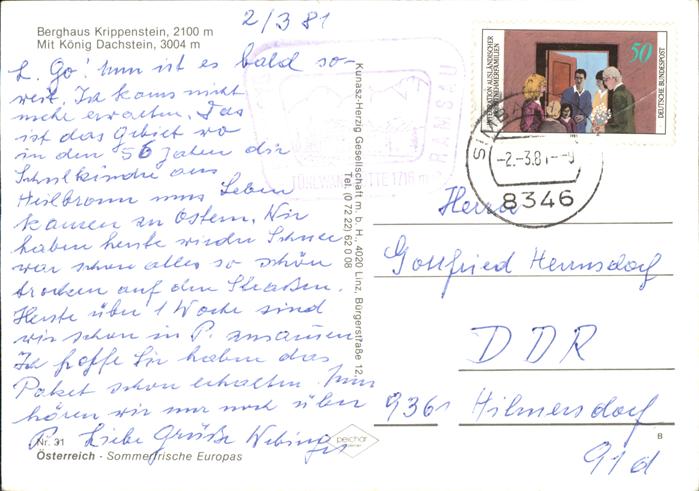 Berghaus Krippenstein, 2100 m
Mit König Dachstein, 3004 m
2/3 81
L. Go! Nun ist es bald so-
weit. Ich kanns nicht
mehr erwarten. Das
ist das Gebiet wo
in den 56 Jahren die
Schulkinder aus
Heilbronn ums Leben
kamen zu Ostern. Wir
haben heute wieder Schnee
war schon alles so schön
trocken auf den Straßen.
Heute über 1 Woche sind
wir schon in P. zusammen
Ich hoffe Sie haben das
Paket schon erhalten. Nun
hören wir nur noch über
P. Liebe Grüße
Nr. 31
Österreich - Sommerfrische Europas
peichär
Kunasz-Herzig Gesellschaft m. b. H., 4020 Linz, Bürgerstraße 12,
Tel. (0 72 22) 62 0 08
RAMSAU
HÜTTE 1716 m
INTEGRATION AUSLÄNDISCHER
ARBEITNEHMERFAMILIEN
50
DEUTSCHE BUNDESPOST
1981
SIMBA
-2.-3.8
8346
Herrn
Gottfried Hermsdorf
DDR
9361 Hilmersdorf
91d
B